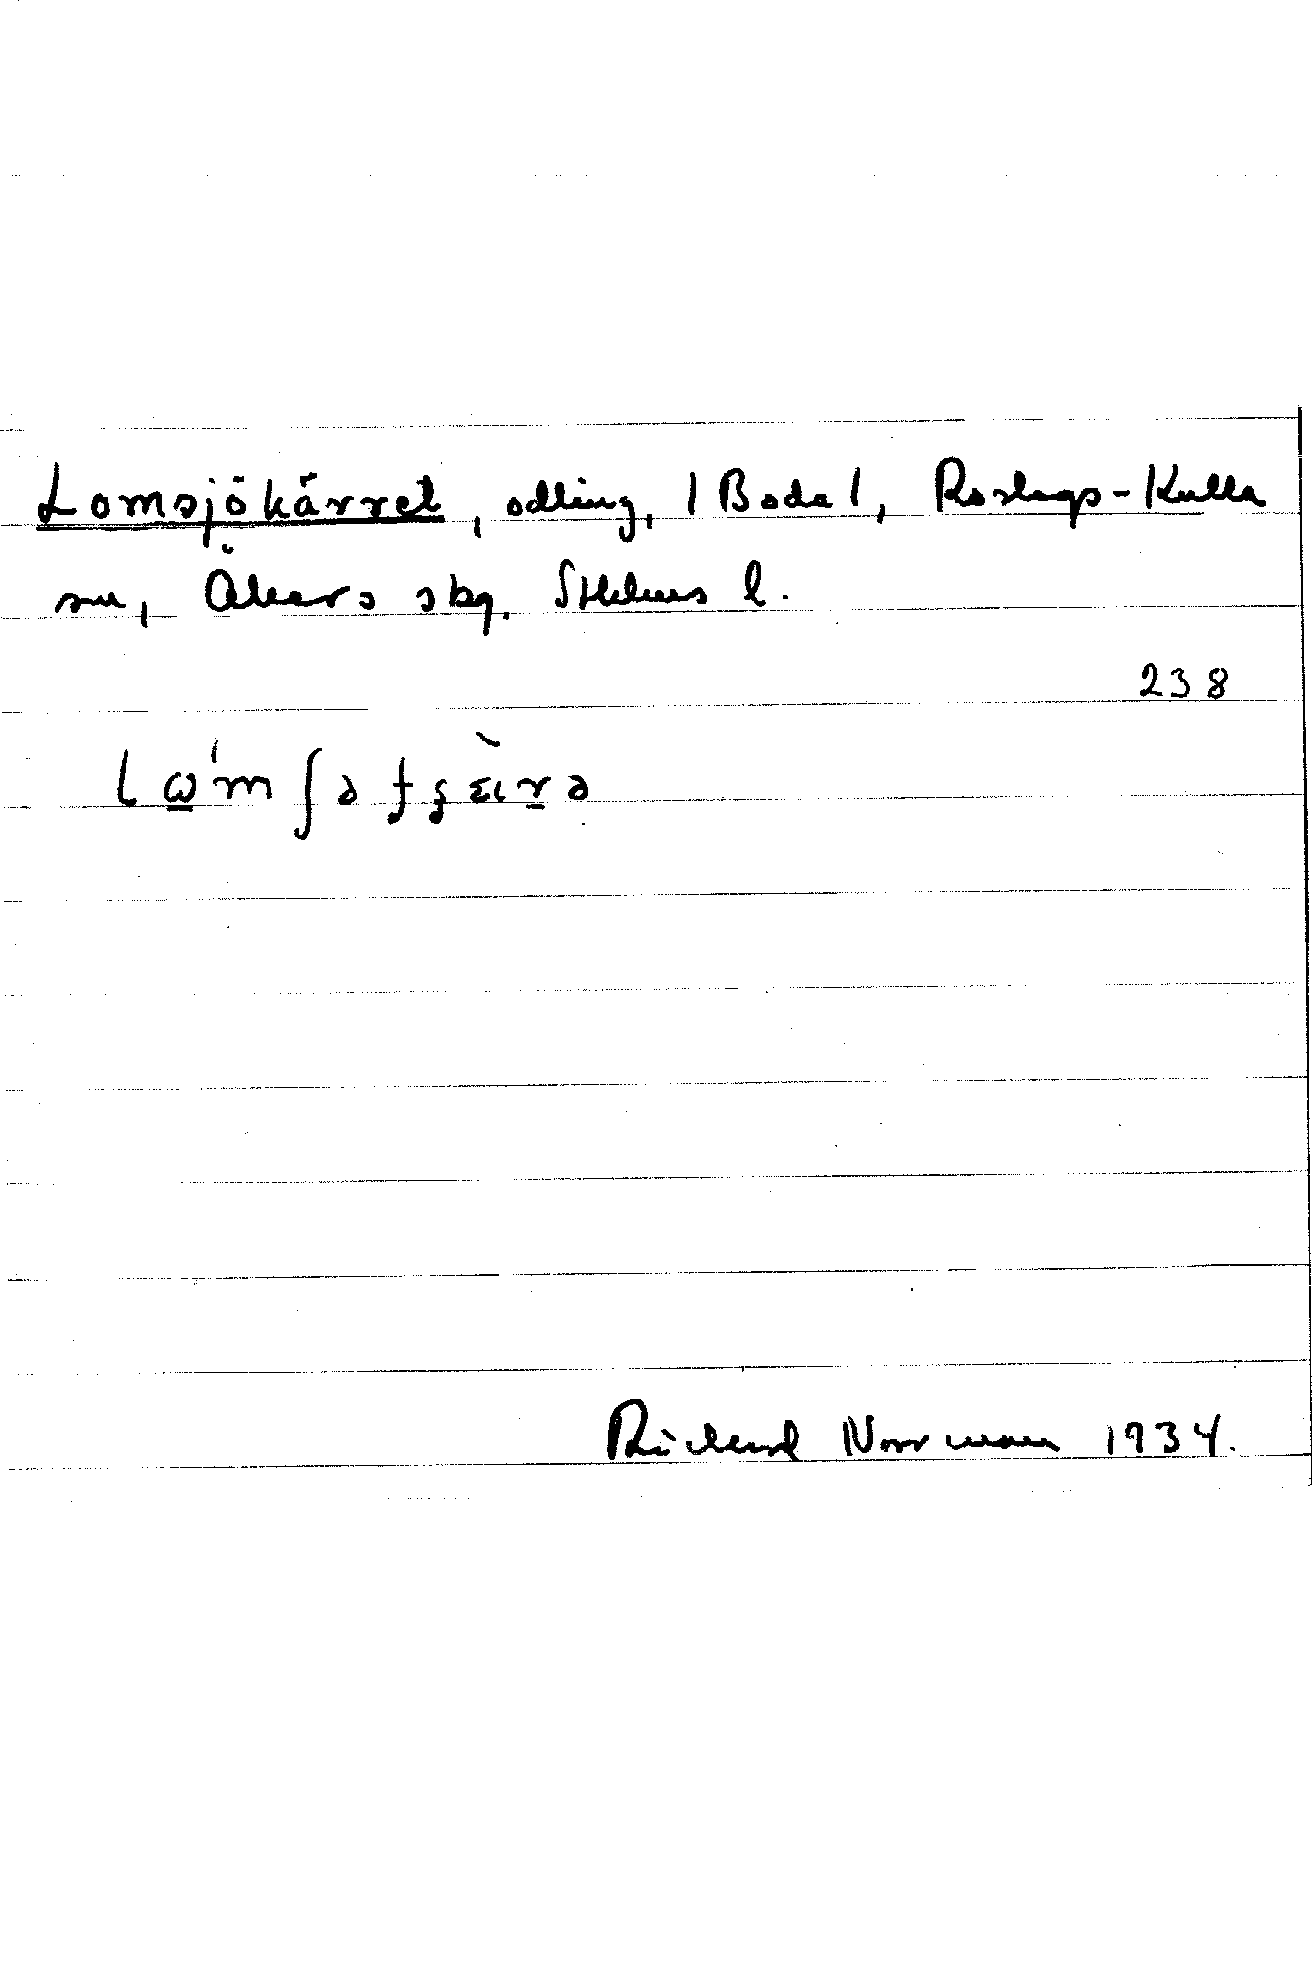 Lomsjökärret, odling, / Boda /, Roslags-Kulla
sn, Åkers skg. Sthlms l.
238
Rickard Norrman 1934.